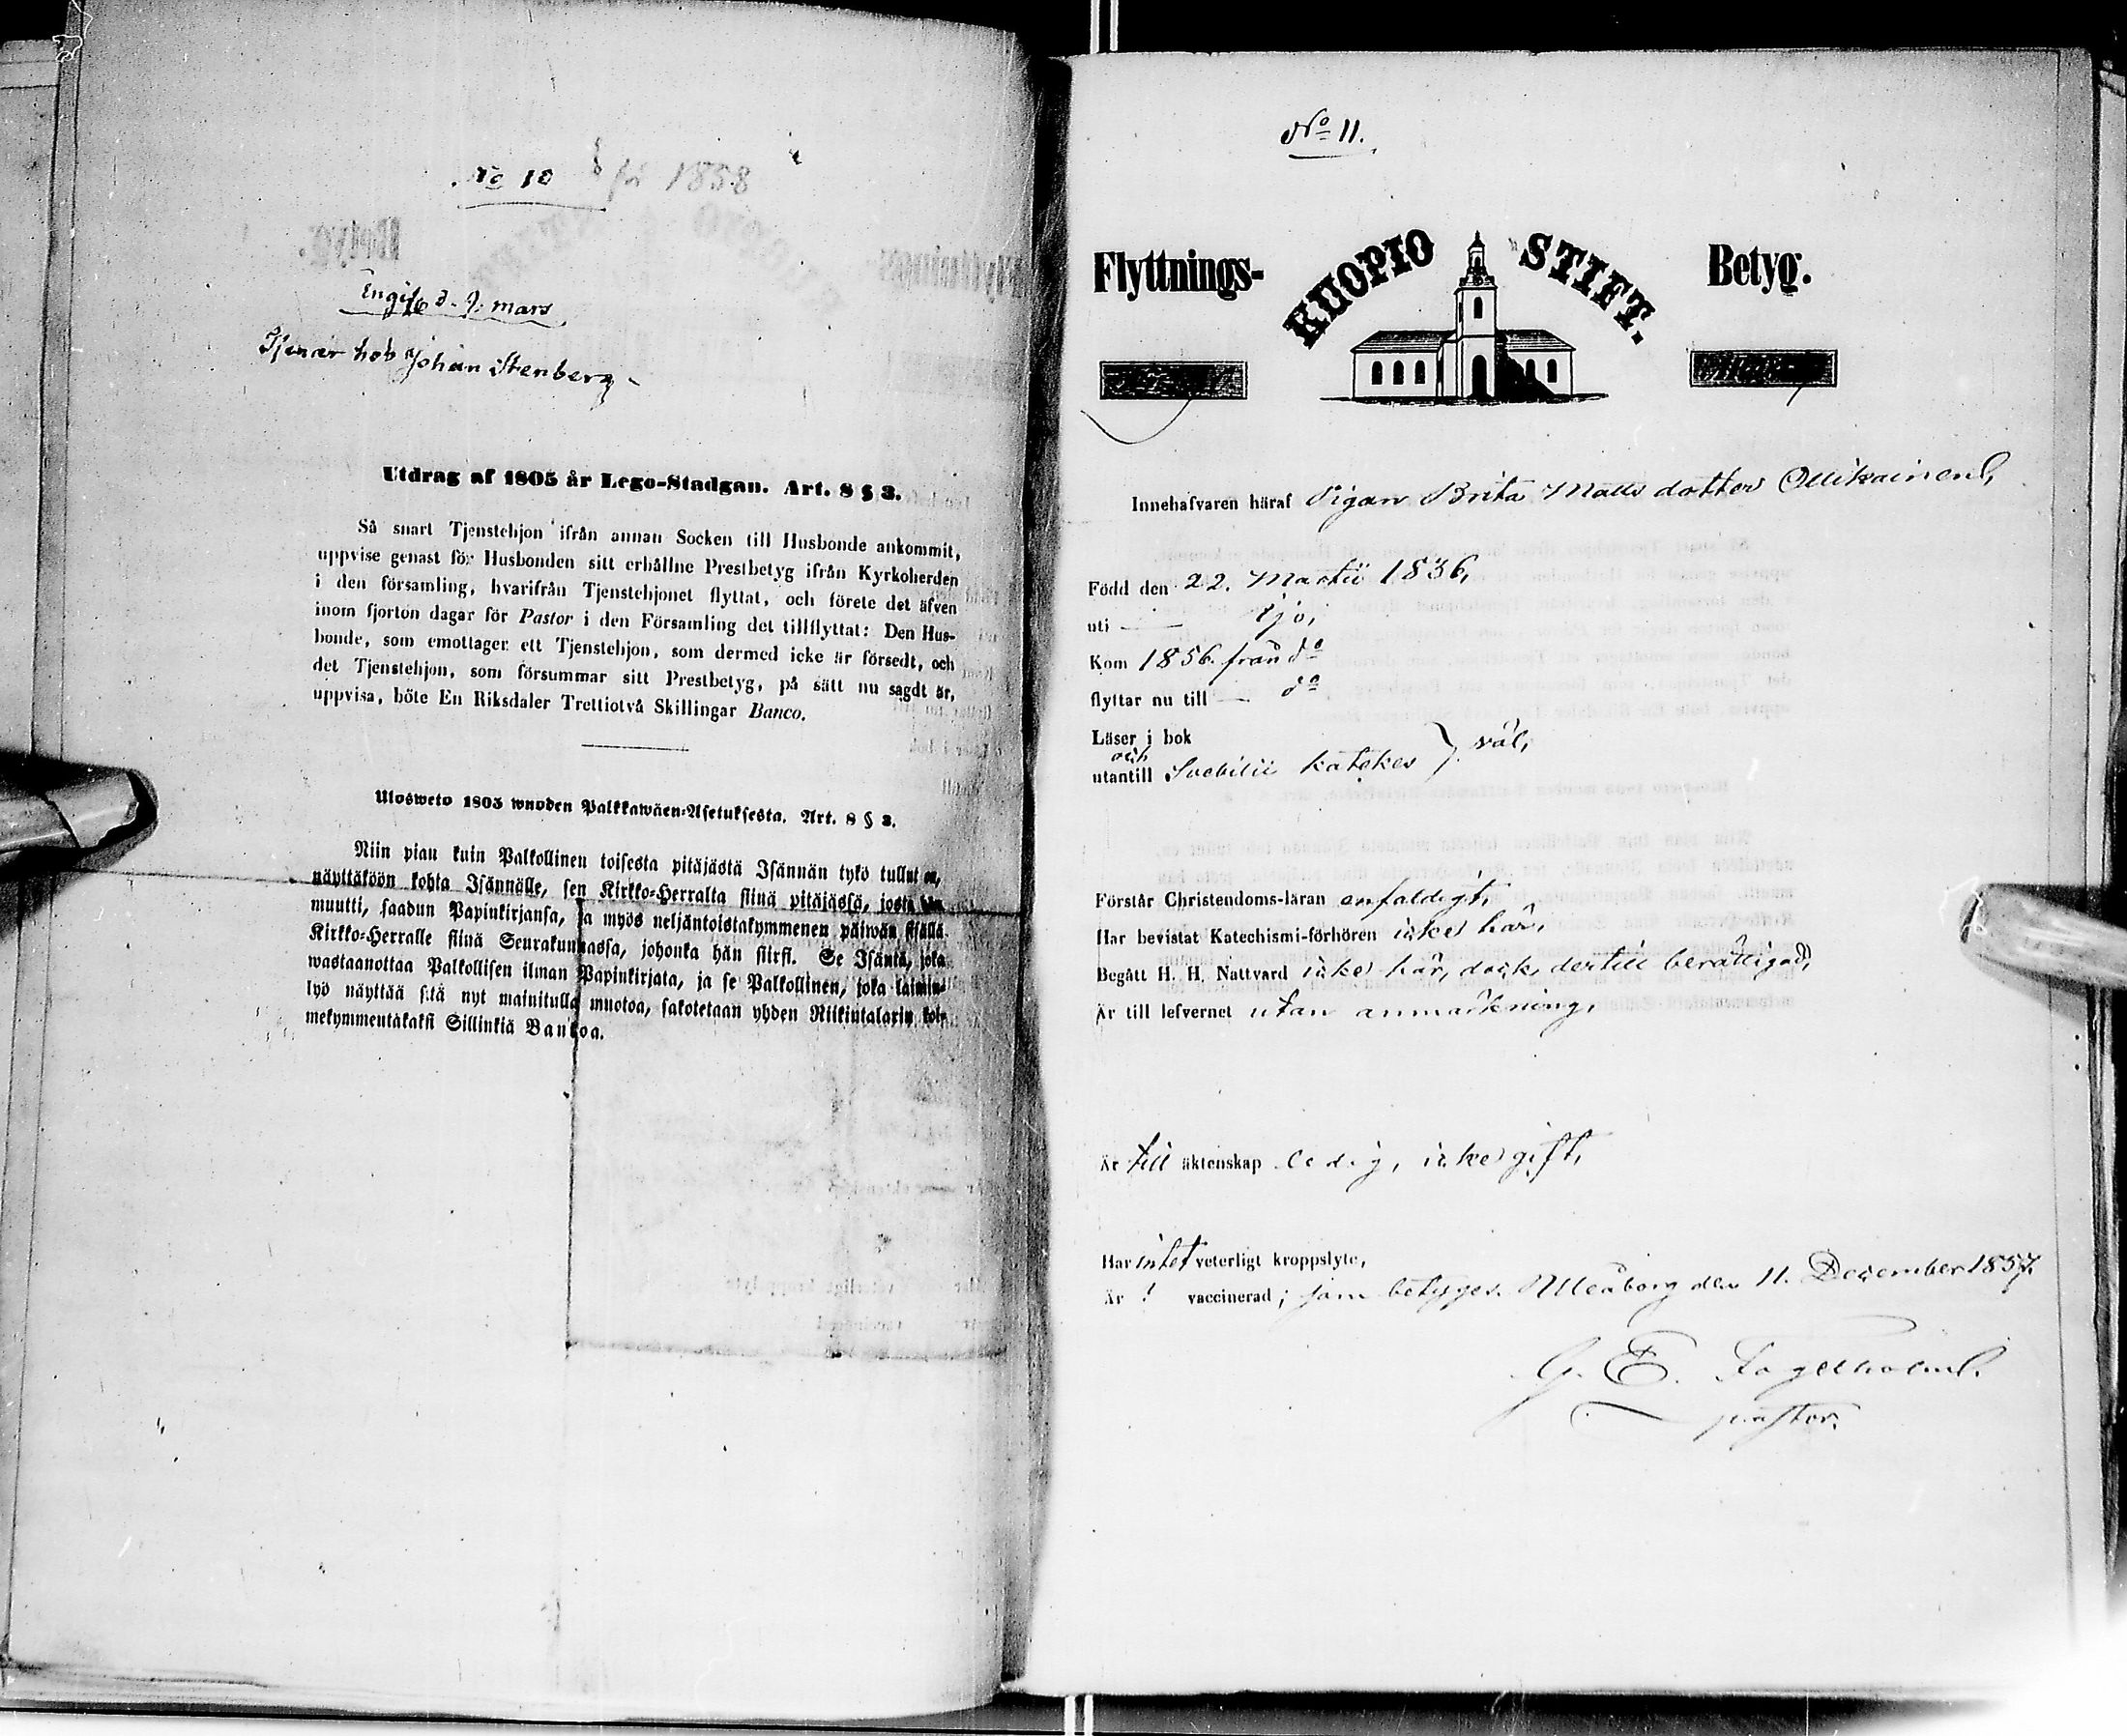 No 10 för 1858
d. 9. mars
Tjenar hos Johan Stenberg
Utdrag af 1805 år Lego-Stadgan. Art. 8 § 3.
Så snart Tjenstehjon ifrån annan Socken till Husbonde ankommit,
uppvise genast för Husbonden sitt erhållne Prestbetyg ifrån Kyrkoherden
i den församling, hvarifrån Tjenstehjonet flyttat, och förete det äfven
inom fjorton dagar för Pastor i den Församling det tillflyttat: Den Hus-
bonde, som emottager ett Tjenstehjon, som dermed icke är försedt, och
det Tjenstehjon, som försummar sitt Prestbetyg, på sätt nu sagdt är,
uppvisa, böte En Riksdaler Trettiotvå Skillingar Banco.
Ulosweto 1805 wuoden Palkkawäen-Asetuksesta. Art. 8 § 3.
Niin pian kuin Palkollinen toisesta pitäjästä Isännän tykö tullut on,
näyttäköön kohta Isännälle, sen Kirkko-Herralta siinä pitäjässä, josta hän
muutti, saadun Papinkirjansa, ja myös neljäntoistakymmenen päiwän sisällä
Kirkko-Herralle siinä Seurakunnassa, johonka hän siirsi. Se Isäntä, joka
wastaanottaa Palkollisen ilman Papinkirjata, ja se Palkollinen, joka laimin-
lyö näyttää sitä nyt mainitulla muotoa, sakotetaan yhden Riikintalarin kol-
mekymmentäkaksi Sillinkiä Bankoa.
No 11.
Flyttnings- KUOPIO STIFT. Betyg.
Innehafvaren häraf Pigan Brita Matts dotter Ollikainen,
Född den 22. Martii 1836,
uti Ijo,
Kom 1856. från do
flyttar nu till do
Läser i bok
och väl,
utantill Svebilii katekes
Förstår Christendoms-läran enfaldigt,
Har bevistat Katechismi-förhören icke här,
Begått H. H. Nattvard icke här, dock dertill berättigad,
Är till lefvernet utan anmärkning,
Är till äktenskap ledig, icke gift,
Har intet veterligt kroppslyte,
Är vaccinerad; som betygas. Uleåborg den 11. December 1857.
G. E. Fogelholm.
pastor.